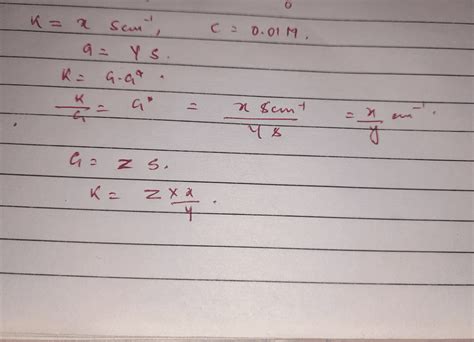 K = x Scm⁻¹, C = 0.01M.
G = Y S.
K = G.G*.
K/G = G* = x Scm⁻¹ / Y S = x/y cm⁻¹.
G = Z S.
K = Z × x / Y.